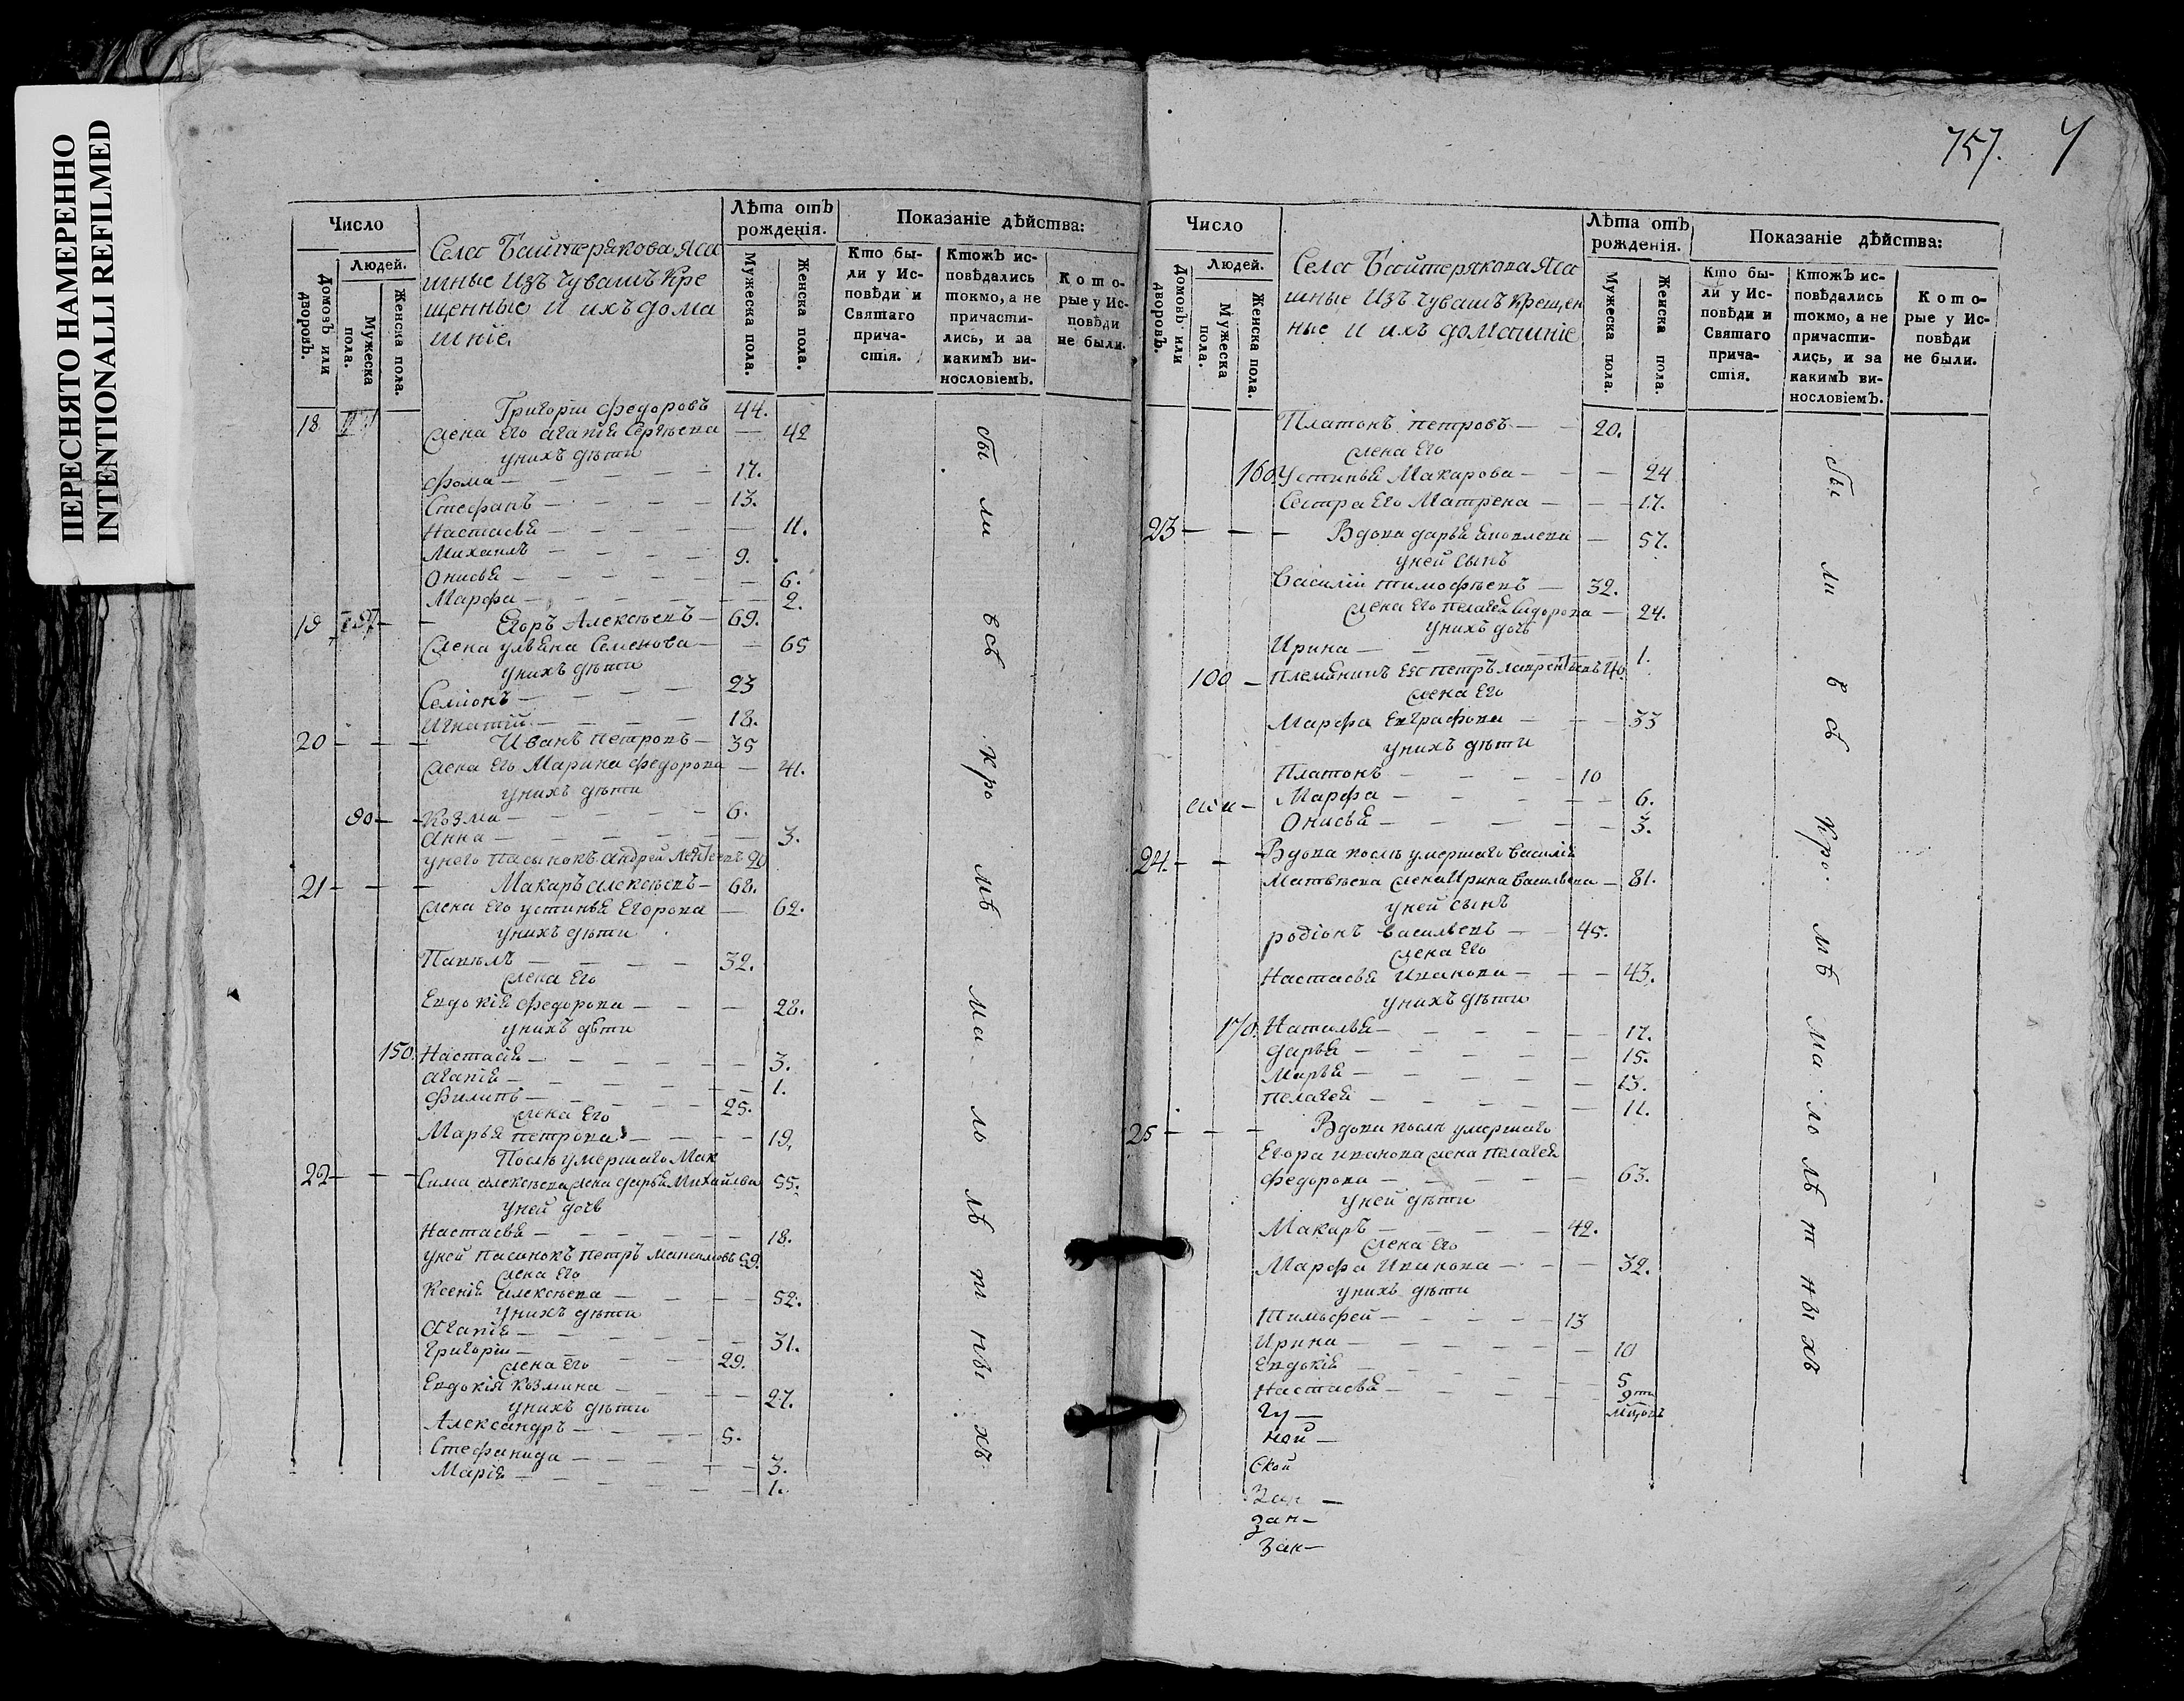 ПЕРЕСНЯТО НАМЕРЕННО
INTENTIONALLI REFILMED
Число
Людей.
Домовъ или дворовъ.
Мужеска пола.
Женска пола.
Села Байтерякова Яса
шные Изъ Чувашъ Кре
щенные и ихъ дома
шніе.
Лѣта отъ рожденія.
Мужеска пола.
Женска пола.
Показаніе дѣйства:
Кто бы-
ли у Ис-
повѣди и
Святаго
прича-
стія.
Ктожъ ис-
повѣдались
токмо, а не
причасти-
лись, и за
какимъ ви-
нословіемъ.
Кото-
рые у Ис-
повѣди
не были.
18 Григорiи Федоровъ 44.
жена Его Агапiя Сергѣева — 42
унихъ дѣти
Фома — 17.
Стефанъ — 13.
Настасья — 11.
Михаилъ — 9.
Онисья — 6.
Марфа — 2.
19 Егоръ Алексѣевъ — 69.
жена ульяна Семенова — 65
унихъ дѣти
Семiонъ — 23
Игнатiй — 18.
20 — Иванъ Петровъ — 35
жена Его Марина Федорова — 41.
унихъ дѣти
90 — Козма — 6.
Анна — 3.
унего Пасынокъ Андрей 20
21 — Макаръ Алексѣевъ — 68.
жена Его устинья Егорова — 62.
унихъ дѣти
Павелъ — 32.
жена Его
Евдокiя Федорова — 28.
унихъ дѣти
150. Настасiя — 3.
Агапiя — 1.
Филипъ — 25.
жена Его
Марья Петрова — 19.
Послѣ умершаго Мак
22 — Сима Алексѣева жена дарья Михайлова 55.
уней дочь
Настасья — 18.
уней Пасынокъ Петръ Максимовъ 59.
жена Его
Ксенiя Алексѣева — 52.
унихъ дѣти
Агапiя — 31.
Григорiи — 29.
жена Его
Евдокiя Козмина — 27.
унихъ дѣти
Александръ — 5.
Стефанида — 3.
Марiя — 1.
бы ли всѣ кро мѣ ма ло лѣ т ны хъ
757. 4
Число
Людей.
Домовъ или дворовъ.
Мужеска пола.
Женска пола.
Села Байтерякова Яса
шные Изъ Чувашъ Крещен
ные и ихъ домашніе
Лѣта отъ рожденія.
Мужеска пола.
Женска пола.
Показаніе дѣйства:
Кто бы-
ли у Ис-
повѣди и
Святаго
прича-
стія.
Ктожъ ис-
повѣдались
токмо, а не
причасти-
лись, и за
какимъ ви-
нословіемъ.
Кото-
рые у Ис-
повѣди
не были.
Платонъ Петровъ — 20.
жена Его
160. Устинья Макарова — 24
Сестра Его Матрена — 17.
23 — Вдова дарья — 57.
уней сынъ
Василiй тимофѣевъ — 32.
жена Его Пелагея Сидорова — 24.
унихъ дочь
Ирина — 1.
100 — Племянникъ Его Петръ Лаврентьевъ 40.
жена Его
Марфа Евграфова — 33
унихъ дѣти
Платонъ — 10
Марфа — 6.
Онисья — 3.
24 — Вдова послѣ умершаго Василiя
Матвѣева жена Ирина Васильева — 81.
уней сынъ
родiонъ Васильевъ — 45.
жена Его
Настасья Иванова — 43.
унихъ дѣти
170. Наталья — 17.
дарья — 15.
Марья — 13.
Пелагея — 11.
25 — Вдова послѣ умершаго
Егора иванова жена Пелагея
Федорова — 63.
уней дѣти
Макаръ — 42.
жена Его
Марфа Иванова — 32.
унихъ дѣти
Тимофей — 13
Ирина — 10
Евдокiя — 5
Настасья —
Чу —
ной —
Ской
Зак —
Зак —
Зак —
бы ли всѣ кро мѣ ма ло лѣ т ны хъ